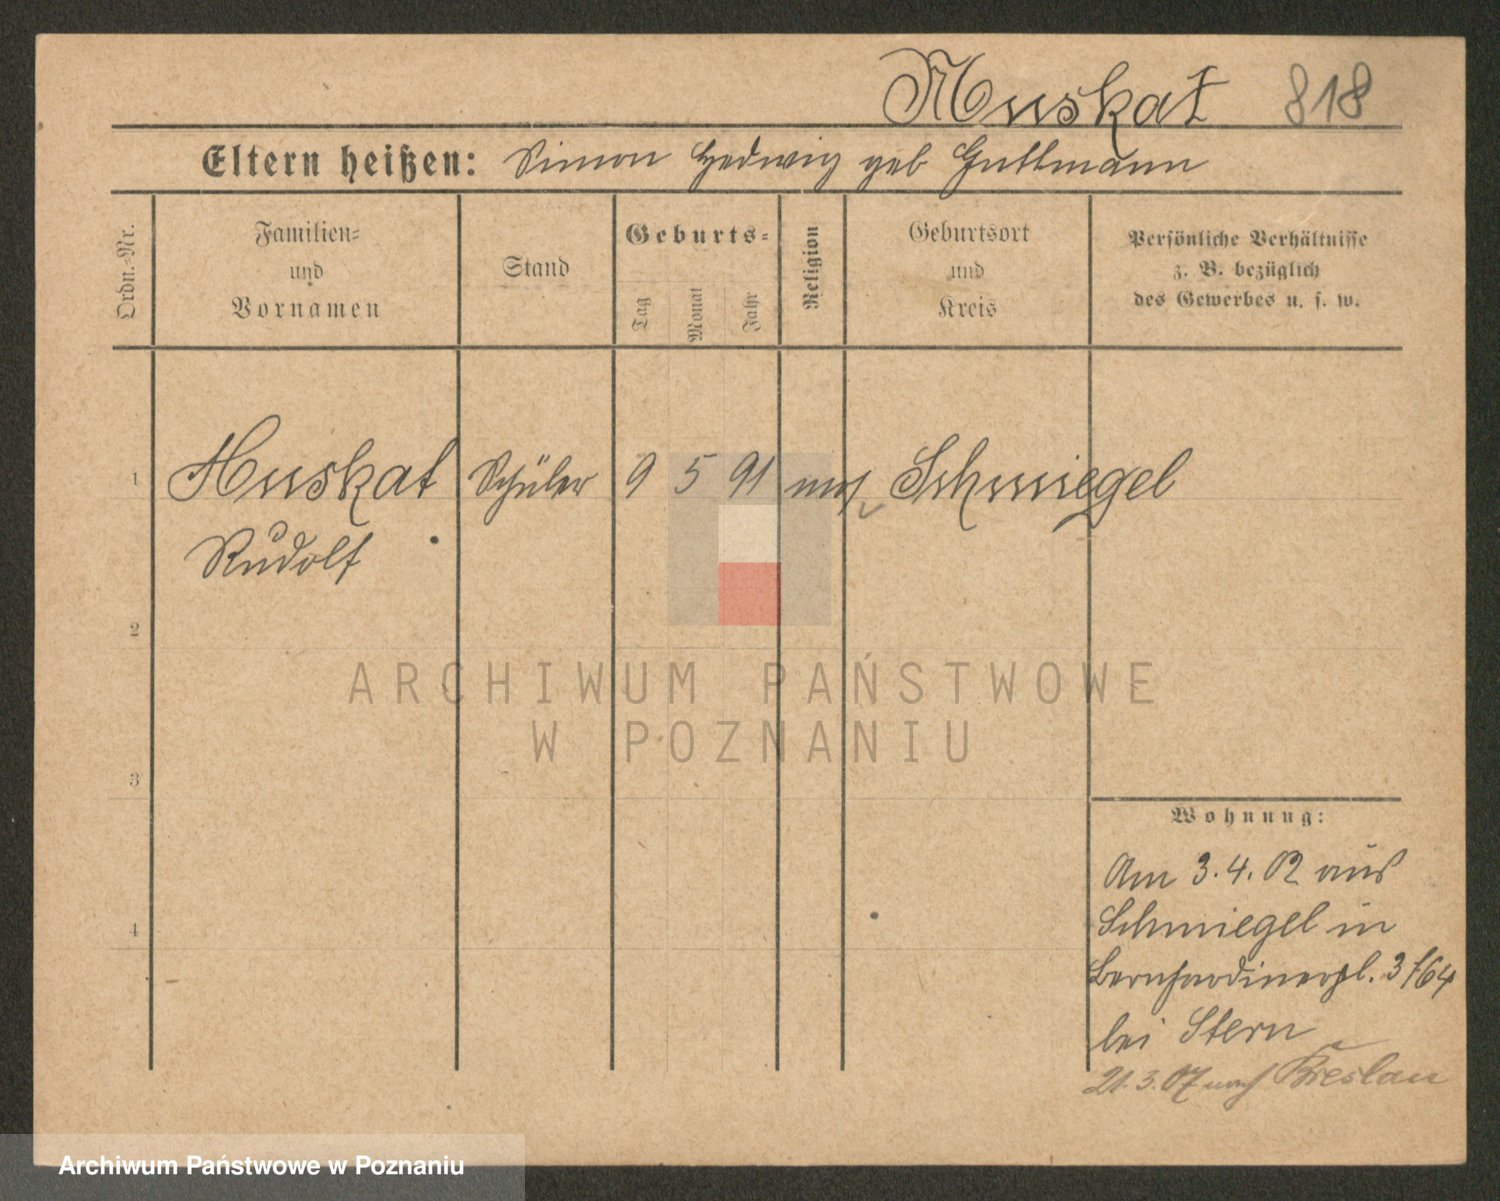 Muskat 818
Eltern heißen: Simon Hedwig geb Guttmann
Ordn.-Nr.
Familien-
und
Vornamen
Stand
Geburts-
Tag
Monat
Jahr
Religion
Geburtsort
und
Kreis
Persönliche Verhältnisse
z. B. bezüglich
des Gewerbes u. s. w.
1 Muskat Schüler 9 5 91 mos Schmiegel
Rudolf
2
3
4
ARCHIWUM PAŃSTWOWE
W POZNANIU
Wohnung:
Am 3.4.02 aus
Schmiegel in
Bernhardinerpl. 3/64
bei Stern
21.3.07 nach Breslau
Archiwum Państwowe w Poznaniu